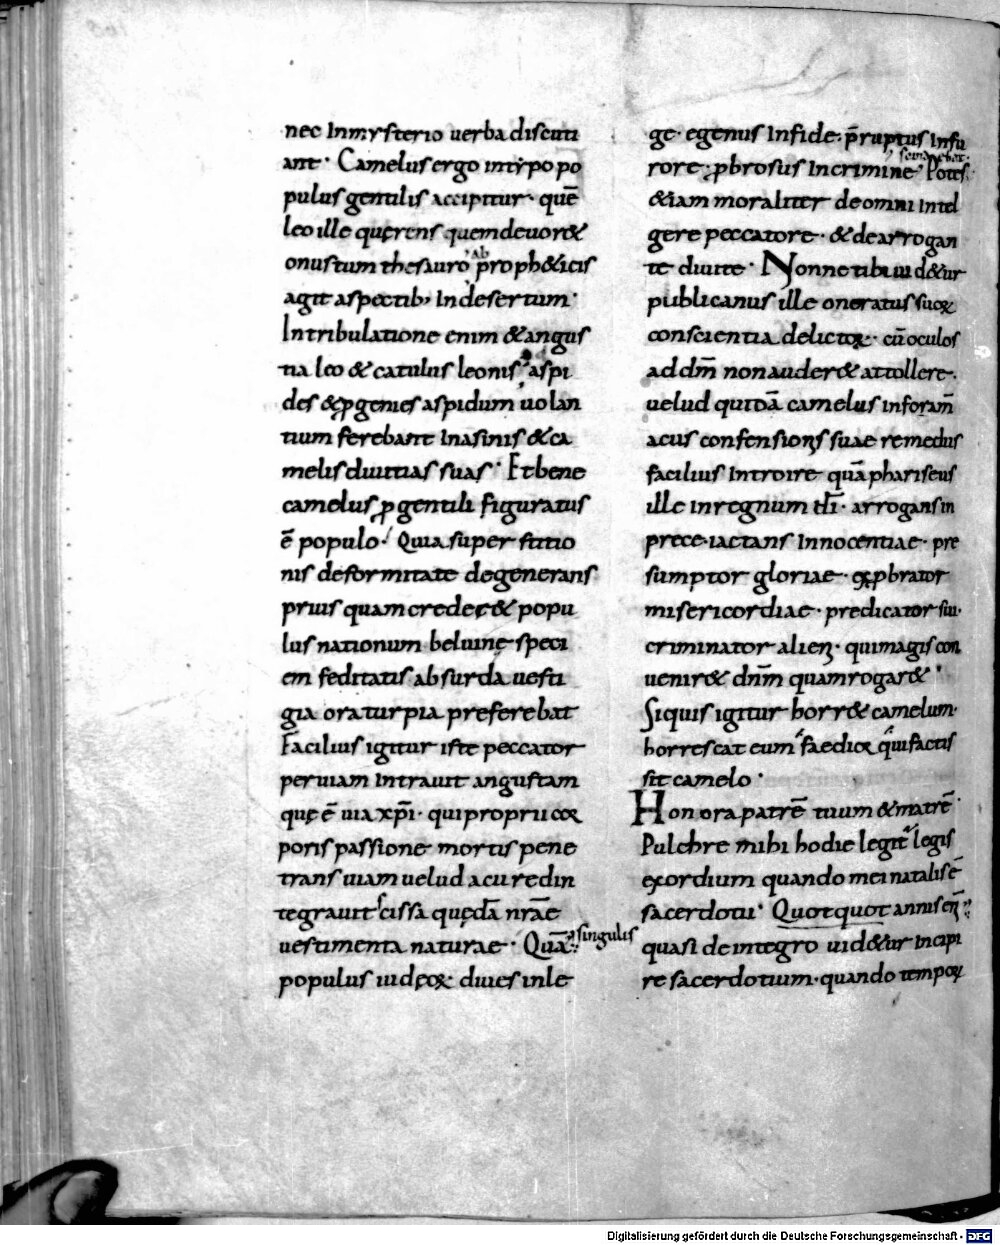 nec Inmysterio uerba discuti
ant· Camelus ergo intypo po
pulus gentilis accipitur· quē
leo ille quęrens quem deuor&
onustum thesauro ab proph&icis
agit aspectib; Indesertum·
Intribulatione enim & angus
tia leo & catulus leonis, aspi
des & ꝓgenies aspidum uolan
tium ferebant Inasinis & ca
melis diuitias suas· Et bene
camelus ꝓ gentili figuratus
ē populo· Quia superstitio
nis deformitate degenerans
prius quam creder& popu
lus nationum beluinę speci
em feditatis absurda uesti
gia ora turpia preferebat
Facilius igitur iste peccator
per uiam Intrauit angustam
quę ē uia xp̄i· qui proprii coꝝ
poris passione mortis pene
trans uiam uelud acu redin
tegrauit scissa quędā nrāe
uestimenta naturae· Quā singulis
populus iudęoꝝ diues in le
ge· egenus Infide· p̄ruptus Infu
rore ꝓbrosus Incrimine· Potes
&iam moraliter de omni Intel
gere peccatore· & dearrogan
te diuite· Nonne tibi uid&ur
publicanus ille oneratus suoꝝ
conscientia delictoꝝ· cū oculos
ad dm̄ non auder& attollere·
uelud quidā camelus inforam̄
acus confensionis suae remediis
facilius Introire quā phariseus
ille inregnum dī· arrogans in
prece· iactans Innocentiae· pre
sumptor gloriae· exꝓbrator
misericordiae· predicator sui·
criminator alieni· qui magis con
uenir& dnm̄ quam rogar&·
Si quis igitur horr& camelum·
horrescat eum
sit camelo·
Honora patrē tuum & matrē·
Pulchre mihi hodie legit legis
exordium quando mei natalis ē
sacerdotii· Quotquot annis enī
quasi de integro uid&ur Incipi
re sacerdotium· quando tempoꝝ
Digitalisierung gefördert durch die Deutsche Forschungsgemeinschaft - DFG